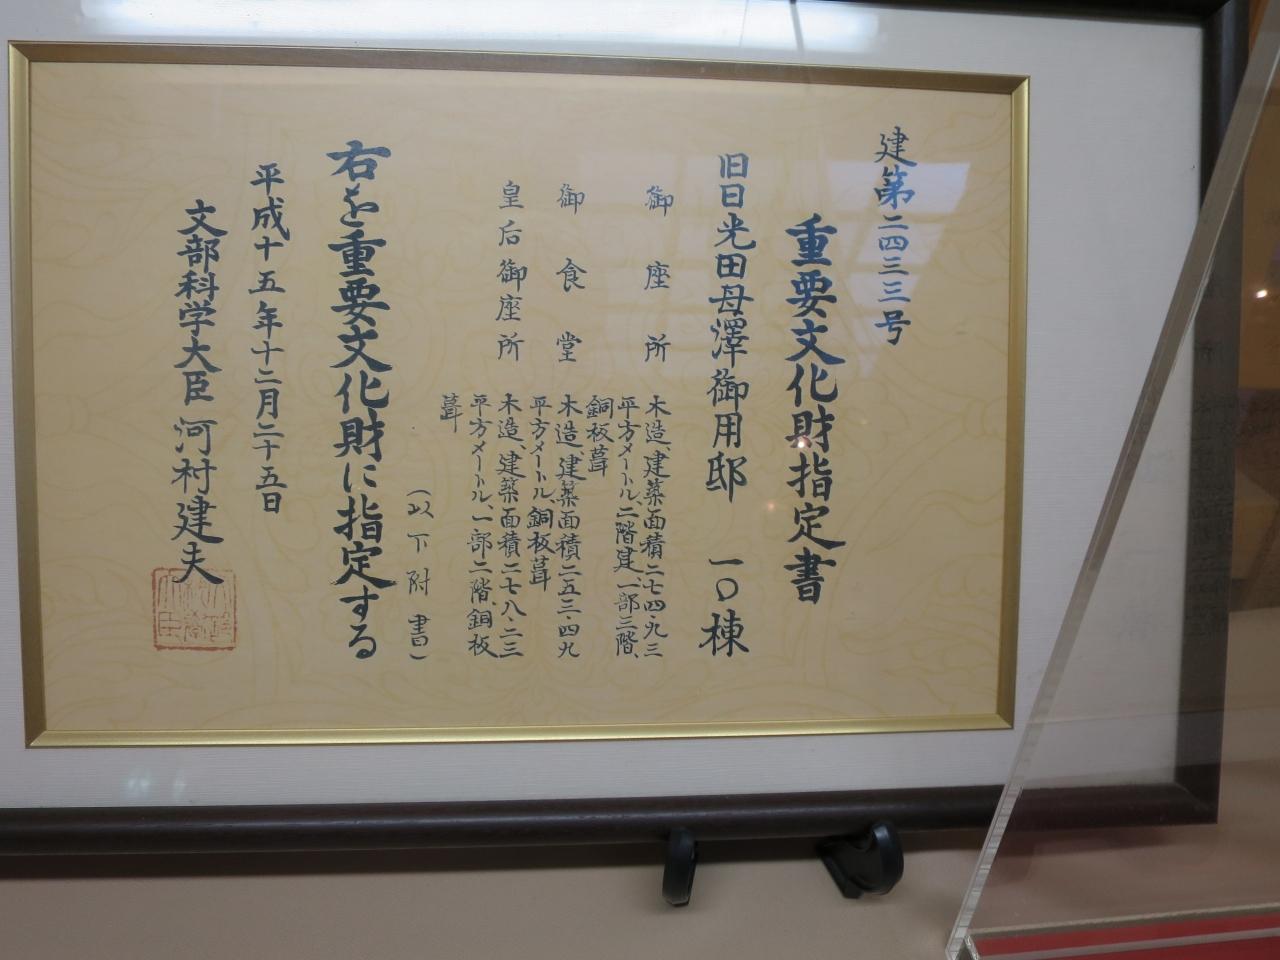 建第二四三三号
重要文化財指定書
旧日光田母澤御用邸　一〇棟
御座所
木造、建築面積二七四・九三
平方メートル、二階建、一部三階、
銅板葺
御食堂
木造、建築面積二五三・四九
平方メートル、銅板葺
皇后御座所
木造、建築面積二七八・二三
平方メートル、一部二階、銅板
葺
（以下附書）
右を重要文化財に指定する
平成十五年十二月二十五日
文部科学大臣　河村建夫